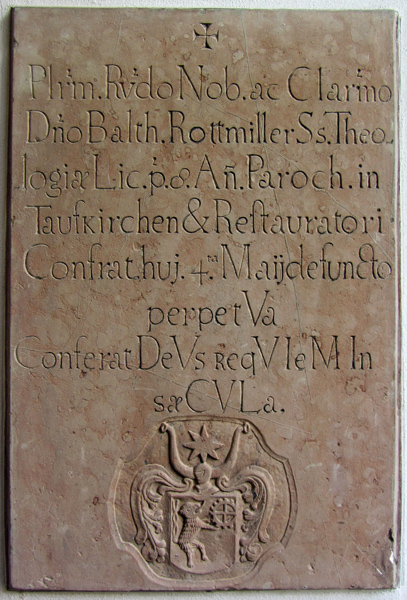 Plr̃im. Rṽdo Nob. ac Clarm̃o
Dño Balth. Rottmiller Ss. Theo
logiæ Lic. p̃. 8. Añ. Paroch. in
Taufkirchen & Restauratori
Confrat. huj. 4.ta Maij defuncto
perpetVa
Conferat DeVs reqVIeM In
sæCVLa.